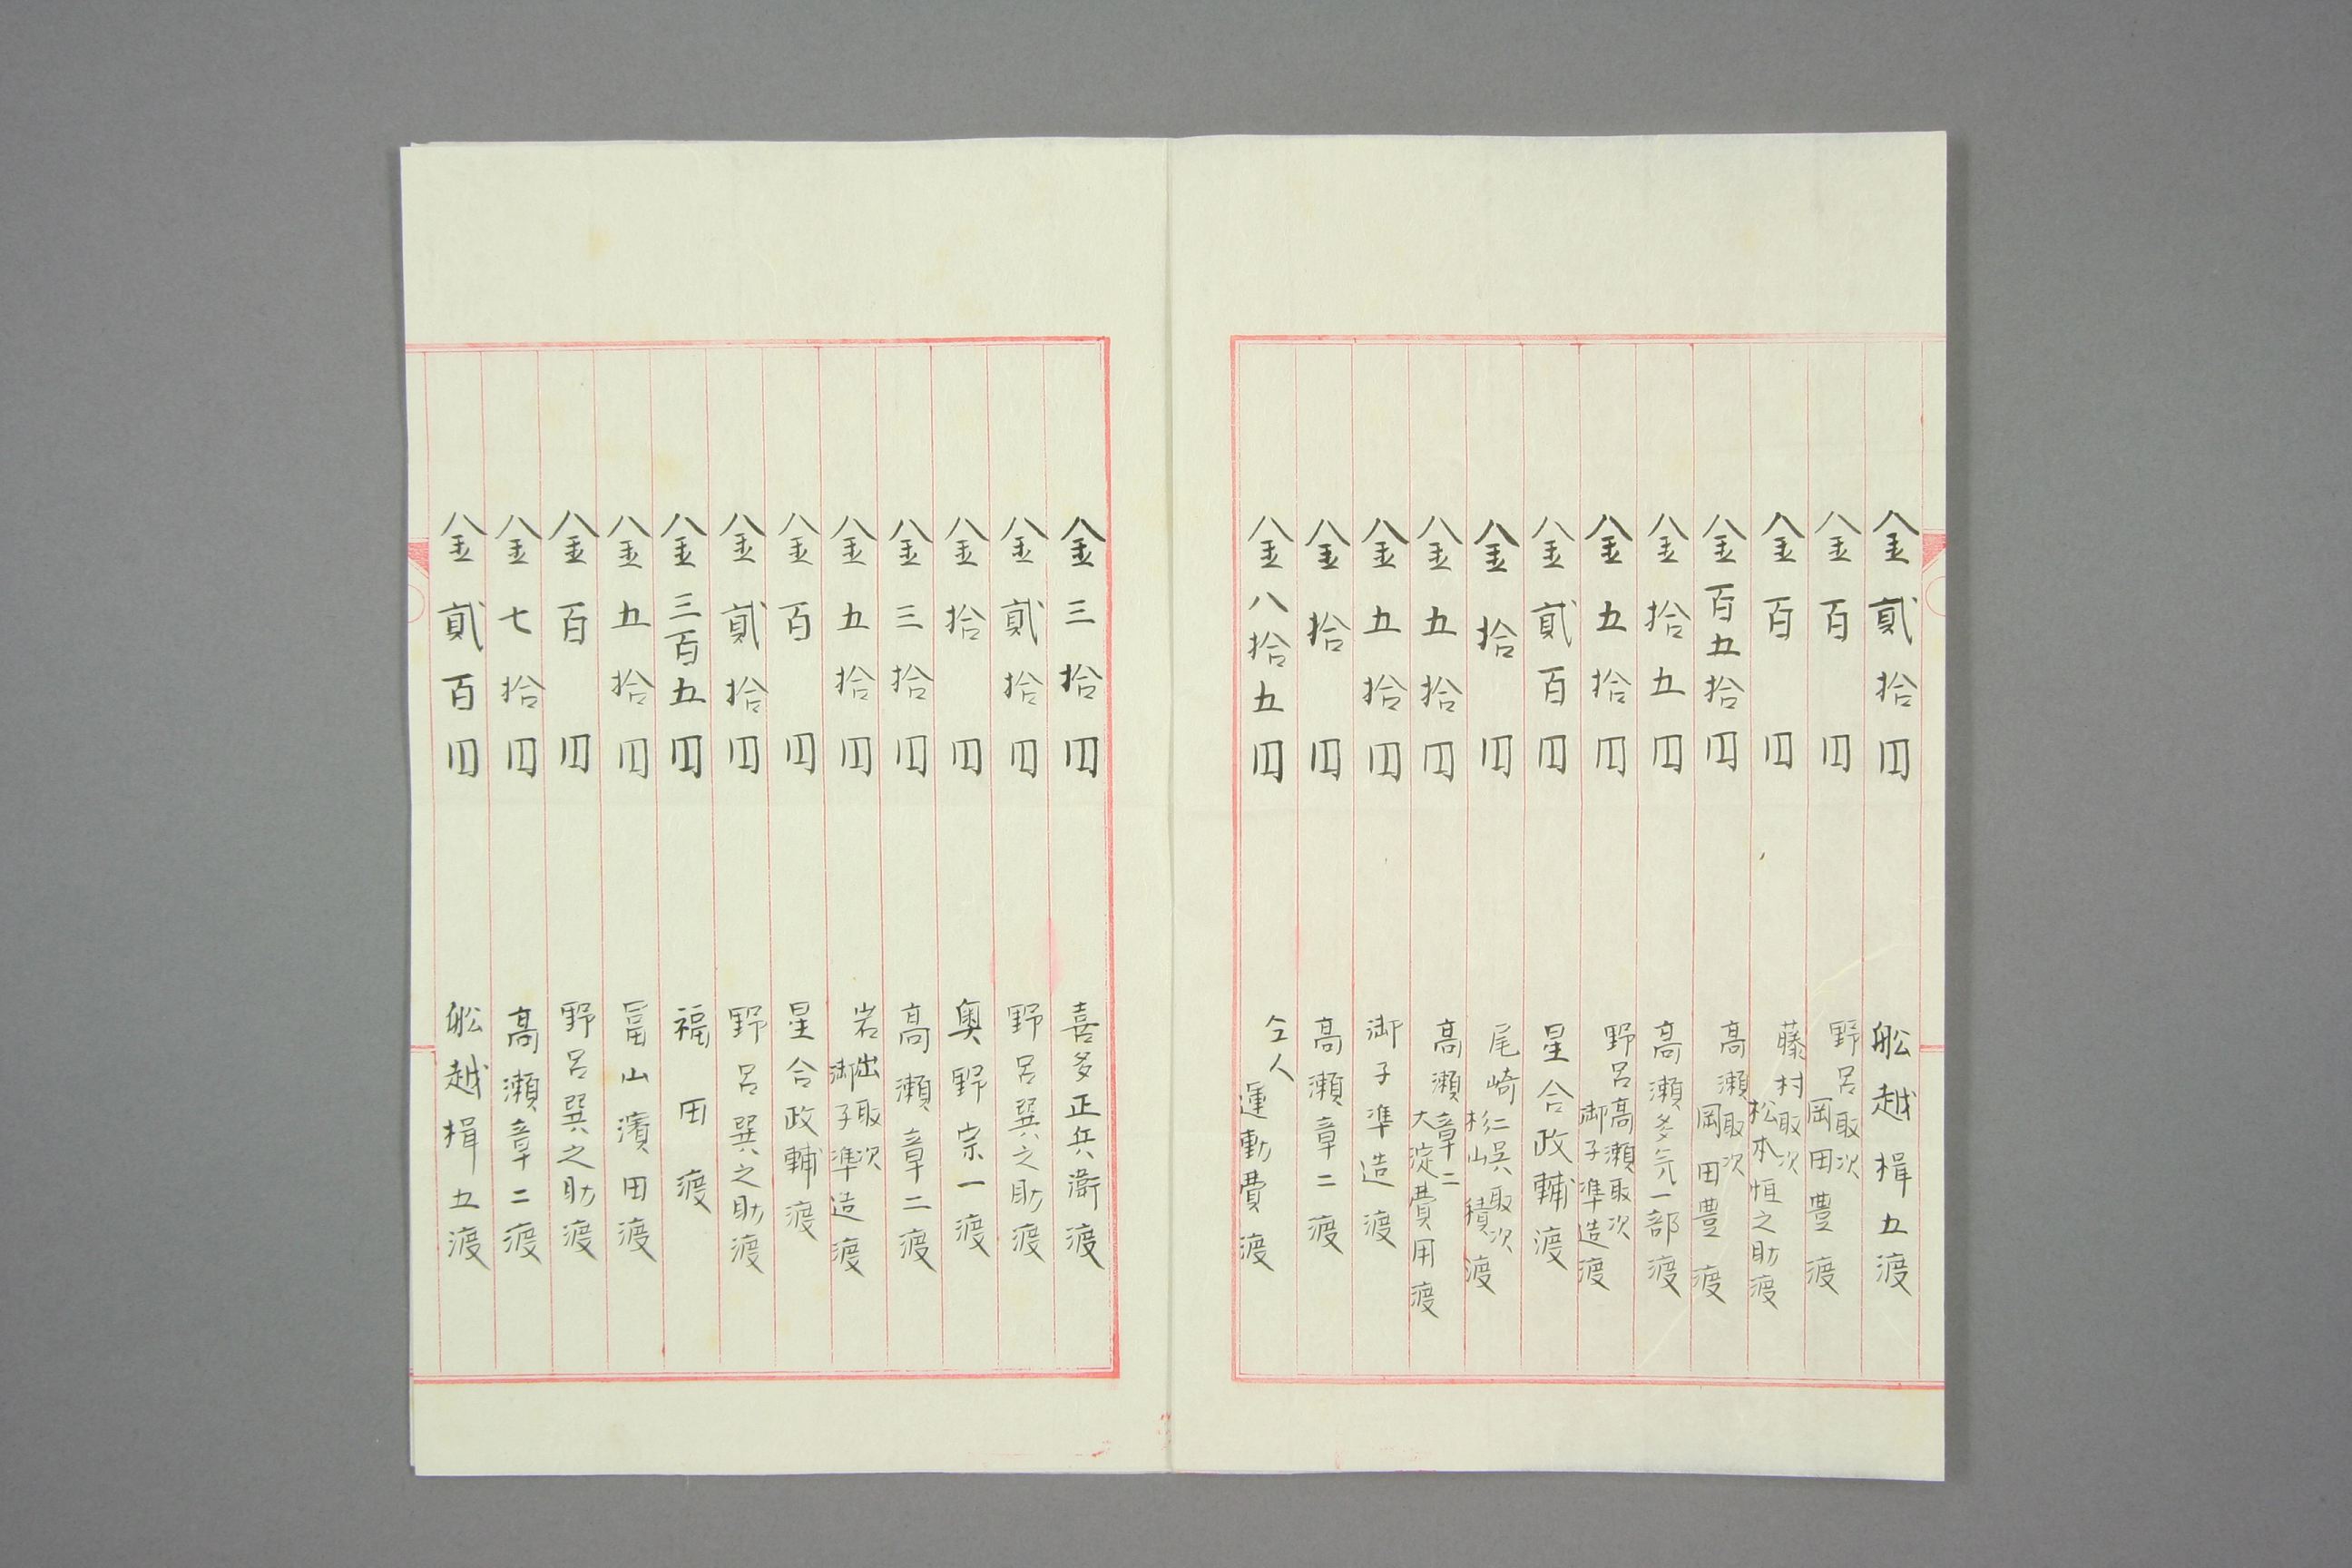 金貳拾円 舩越揖五渡
金百円 野呂取次 岡田豊渡
金百円 藤村取次 松本恒之助渡
金百五拾円 高瀬取次 岡田豊渡
金拾五円 高瀬多気一部渡
金五拾円 野呂高瀬取次 御子準造渡
金貳百円 星合政輔渡
金拾円 尾崎仁呉取次 杉山積渡
金五拾円 高瀬章二 大淀費用渡
金五拾円 御子準造渡
金拾円 高瀬章二渡
金八拾五円 仝人 運動費渡
金三拾円 喜多正兵衛渡
金貳拾円 野呂巽之助渡
金拾円 奥野宗一渡
金三拾円 高瀬章二渡
金五拾円 岩出取次 御子準造渡
金百円 星合政輔渡
金貳拾円 野呂巽之助渡
金三百五円 福田渡
金五拾円 冨山濱田渡
金百円 野呂巽之助渡
金七拾円 高瀬章二渡
金貳百円 舩越揖五渡